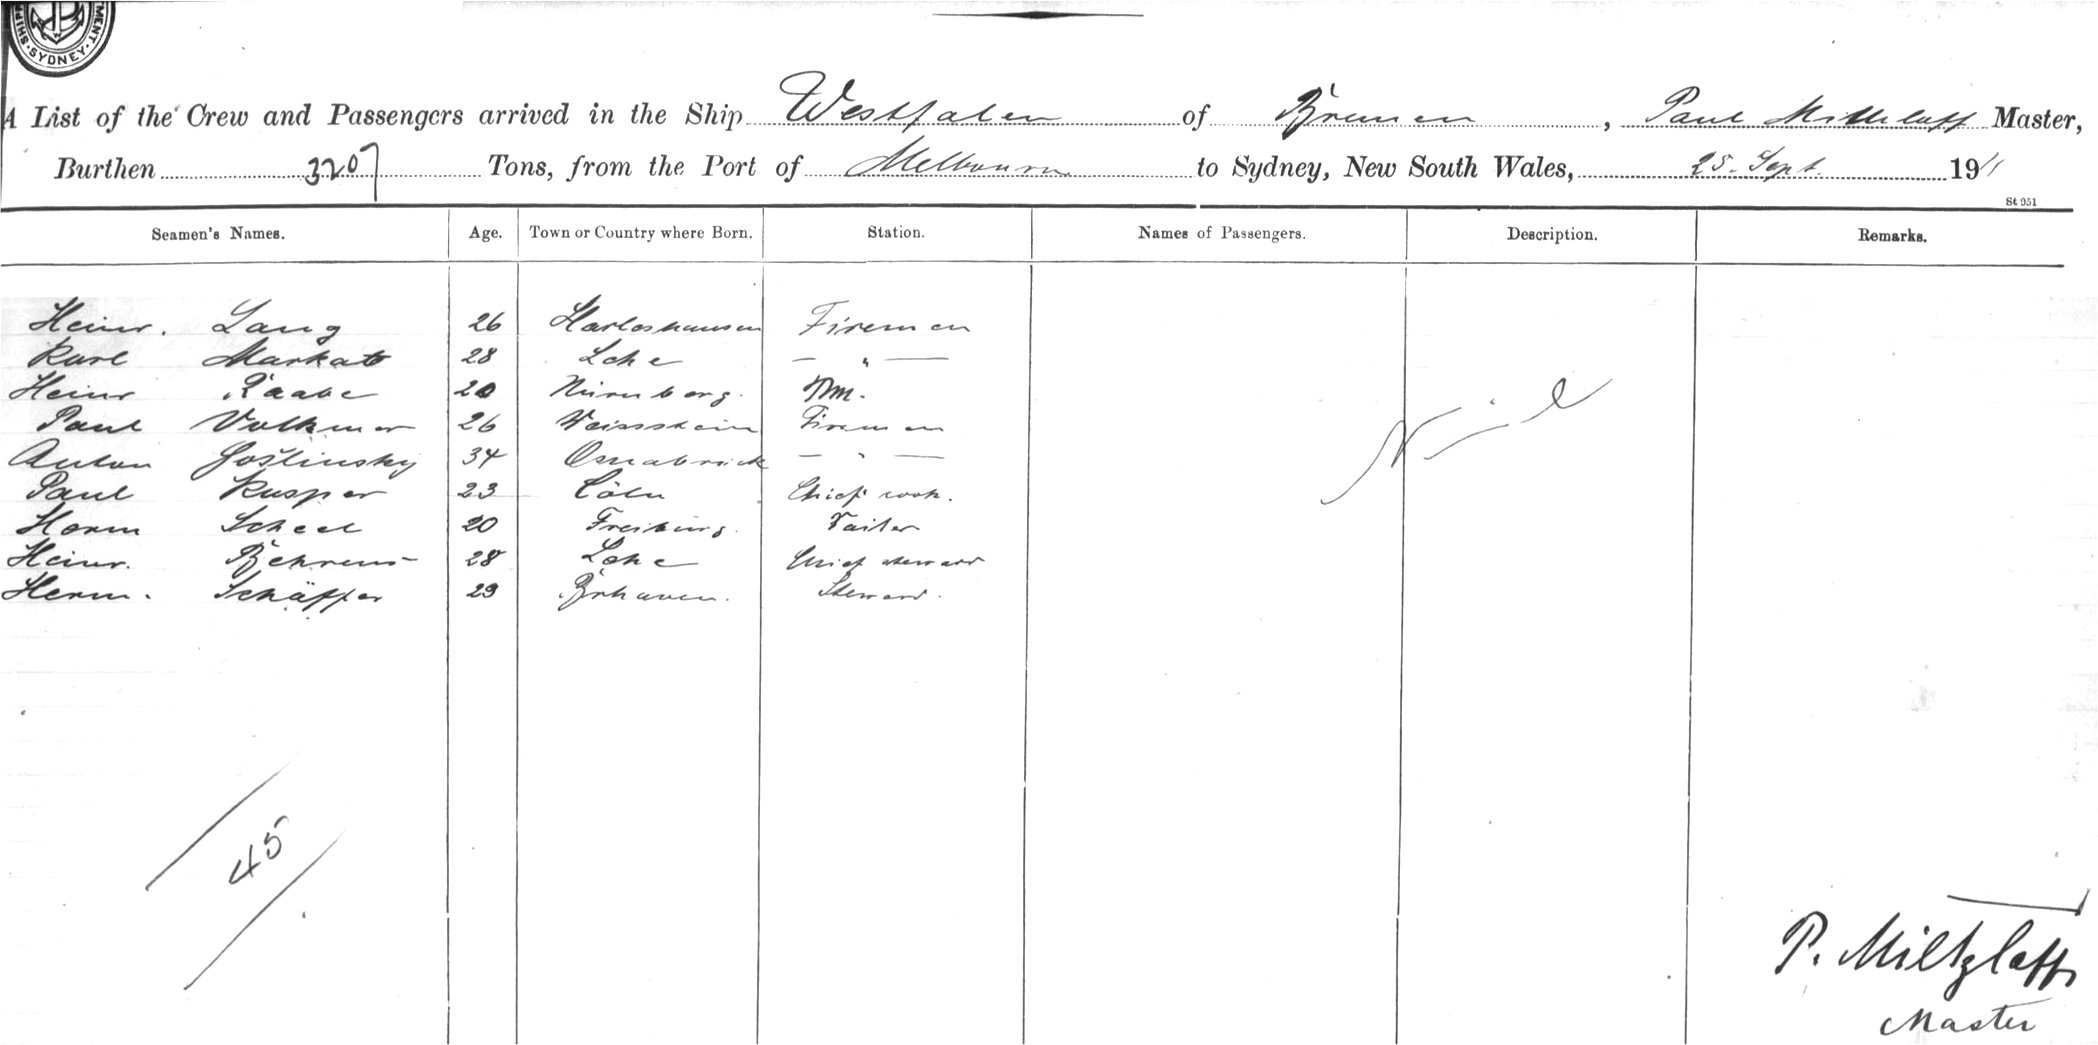 SHIPP MENT · SYDNEY ·
A List of the Crew and Passengers arrived in the Ship Westfalen of Bremen, Paul Master,
Burthen 3207 Tons, from the Port of Melbourne to Sydney, New South Wales, 25. Sept. 1911
St 951
Seamen's Names. Age. Town or Country where Born. Station. Names of Passengers. Description. Remarks.
Heinr. Lang 26 Harleshausen Firemen
Karl 28 Lehe — " —
Heinr Raabe 20 Nürnberg. Trm.
Paul Volkmer 26 Weissstein Firemen
Anton Goslinsky 34 Osnabrück — " —
Paul Kusper 23 Cöln Chief cook.
Herm Scheel 20 Freiburg.
Heinr. Behrens 28 Lehe Chief steward
Herm. Schäffer 29 Brhaven. Steward.
Nil
45
P. Miltzlaff
Master